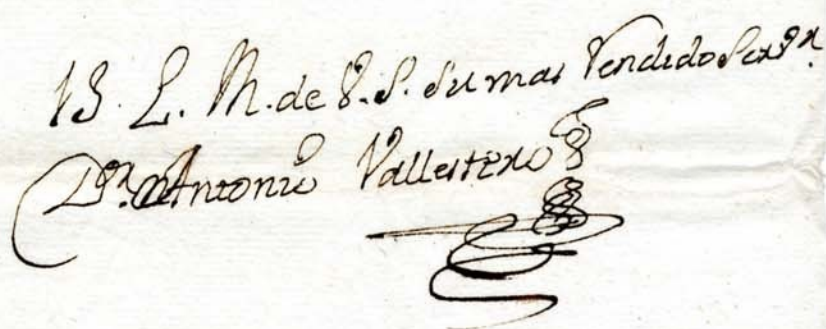 B. L. M. de V. S. su mas Rendido Serv.ʳ
Dⁿ. Antonio Vallestero